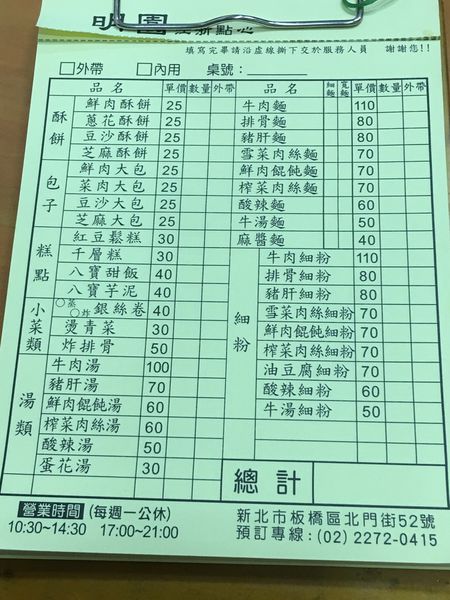 明園
點心
填寫完畢請沿虛線撕下交於服務人員 謝謝您!!
□外帶 □內用 桌號:
品名 單價 數量 外帶
酥餅
鮮肉酥餅 25
蔥花酥餅 25
豆沙酥餅 25
芝麻酥餅 25
包子
鮮肉大包 25
菜肉大包 25
豆沙大包 25
芝麻大包 25
糕點
紅豆鬆糕 30
千層糕 30
八寶甜飯 40
八寶芋泥 40
小菜類
○蒸○炸銀絲卷 40
燙青菜 30
炸排骨 50
湯類
牛肉湯 100
豬肝湯 70
鮮肉餛飩湯 60
榨菜肉絲湯 60
酸辣湯 50
蛋花湯 30
品名 細麵 寬麵 單價 數量 外帶
牛肉麵 110
排骨麵 80
豬肝麵 80
雪菜肉絲麵 70
鮮肉餛飩麵 70
榨菜肉絲麵 70
酸辣麵 60
牛湯麵 50
麻醬麵 40
細粉
牛肉細粉 110
排骨細粉 80
豬肝細粉 80
雪菜肉絲細粉 70
鮮肉餛飩細粉 70
榨菜肉絲細粉 70
油豆腐細粉 70
酸辣細粉 60
牛湯細粉 50
總計
營業時間 (每週一公休)
10:30~14:30 17:00~21:00
新北市板橋區北門街52號
預訂專線:(02) 2272-0415